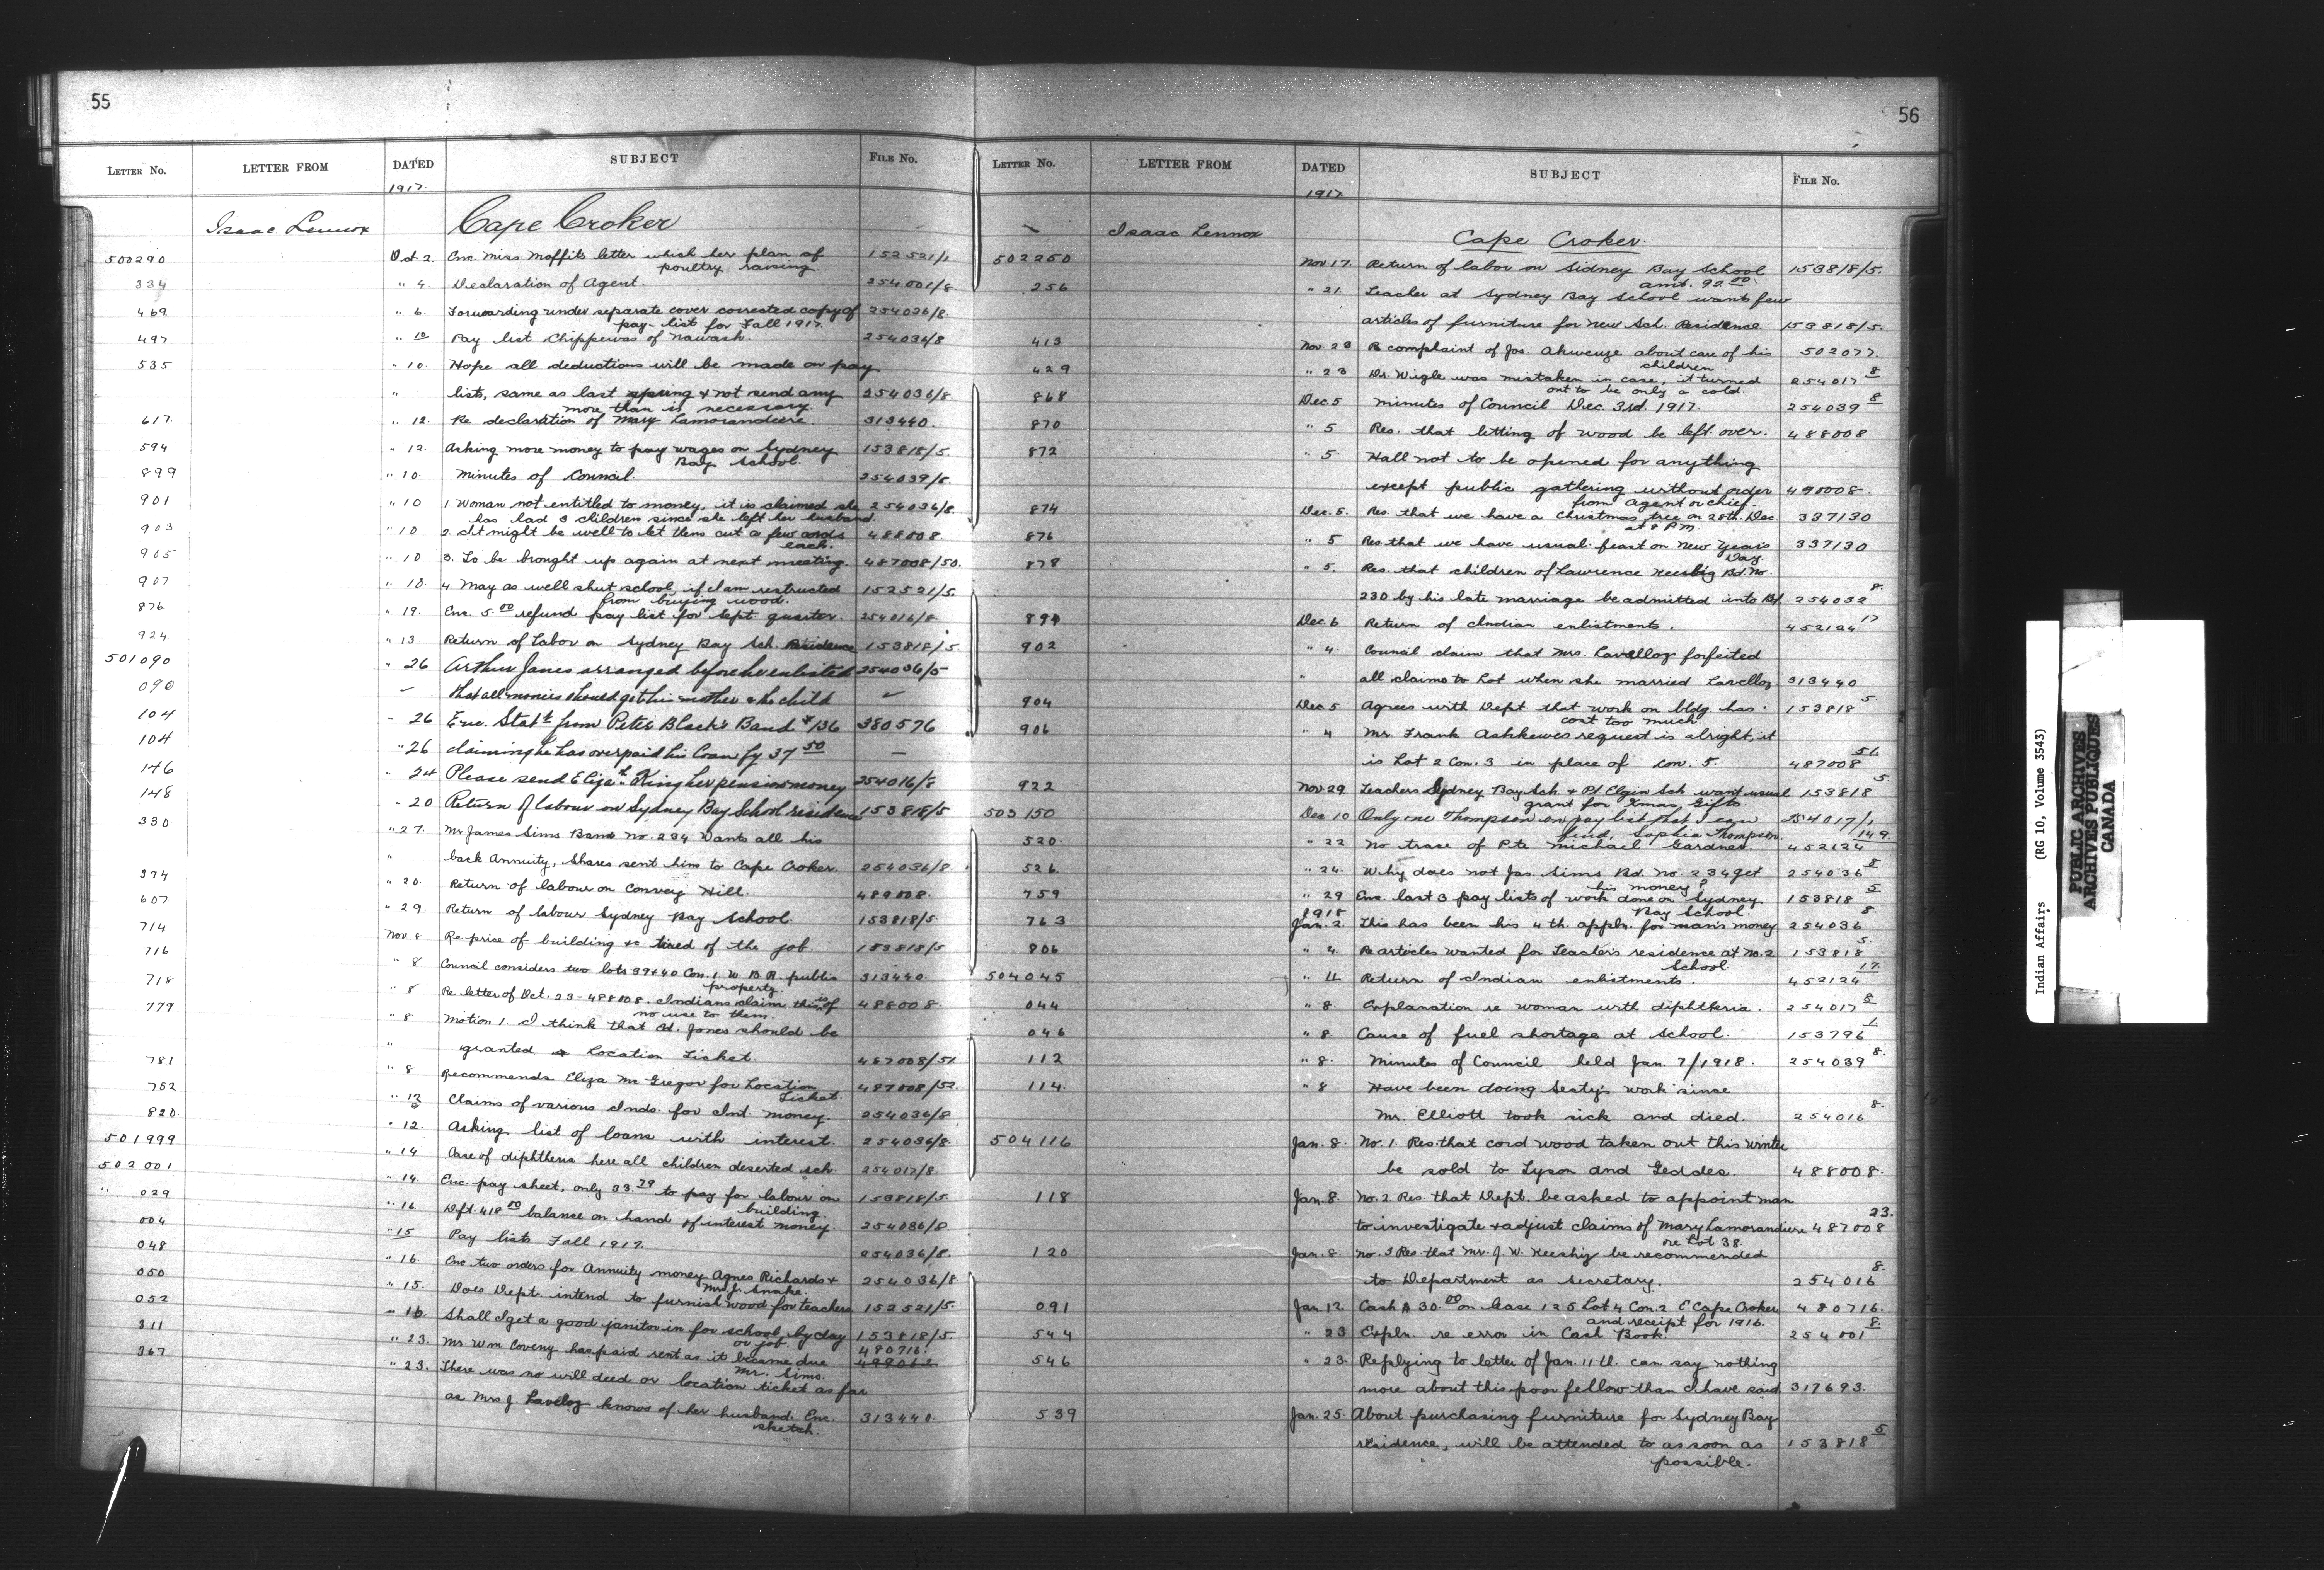 55
LETTER No. LETTER FROM DATED SUBJECT FILE No.
1917.
Isaac Lennox Cape Croker
500290 Oct 2. Enc. Miss Moffits letter which her plan of 152521/1
poultry raising
334 " 4. Declaration of Agent. 254001/8.
469 " 6. Forwarding under separate cover corrected copy of 254036/8.
pay-list for Fall 1917.
497 " 10 Pay list Chippewas of Nawash. 254036/8
535 " 10. Hope all deductions will be made on pay
" lists, same as last spring & not send any 254036/8.
more than is necessary.
617. " 12. Re declaration of Mary Lamorandiere. 313440.
594 " 12. Asking more money to pay wages on Sydney 153818/5.
Bay School.
899 " 10. Minutes of Council. 254039/8.
901 " 10 1. Woman not entitled to money, it is claimed she 254036/8.
has had 3 children since she left her husband.
903 " 10 2. It might be well to let them cut a few cords 488008
each.
905 " 10 3. To be brought up again at next meeting. 487008/50.
907 " 10. 4. May as well shut school, if I am restructed 152521/5
from buying wood.
876 " 19. Enc. 5.00 refund pay list for Sept. quarter. 254016/8.
924 " 13. Return of Labor on Sydney Bay Sch. Residence 153818/5
501090 " 26 Arthur Jones arranged before he enlisted 254036/5
090 that all monies should go to his mother & the child
104 " 26 Enc. Statt from Peter Black's Band #136 380576
104 " 26 claiming he has overpaid his Loan by 37.50 —
146 " 24 Please send Elizath King her pension money 254016/8
148 " 20 Return of labour on Sydney Bay School residence 153818/5
330 " 27. Mr James Sims Band No. 234 Wants all his
" back Annuity, Shares sent him to Cape Croker. 254036/8
374 " 20. Return of labour on Convey Hill. 489008.
607 " 29. Return of labour Sydney Bay School. 153818/5.
714 Nov. 8 Re price of building &c tired of the job 153818/5
716 " 8 Council considers two lots 39&40 Con. 1 W.B.R. public 313440.
property.
718 " 8 Re letter of Oct. 23-488008. Indians claim this is of 488008.
no use to them.
779 " 8 Motion 1. I think that Ad. Jones should be
" granted a Location Ticket. 487008/51
781 " 8 Recommends Eliza McGregor for Location 487008/52.
Ticket.
782 " 12 Claims of various Inds. for Int. money. 254036/8
820 " 12. Asking list of loans with interest. 254036/8.
501999 " 14 Case of diphtheria here all children deserted sch. 254017/8.
502001 " 14. Enc. pay sheet, only 33.79 to pay for labour on 153818/5.
building.
" 029 " 16 Dft. 418.00 balance on hand of interest money. 254036/8
004 " 15 Pay lists Fall 1917. 254036/8.
048 " 16. Enc. two orders for Annuity money Agnes Richards & 254036/8
Mrs. J. Snake.
050 " 15. Does Dept. intend to furnish wood for teachers 152521/5.
052 " 16. Shall I get a good janitor in for school, by day 153818/5
or job. 480716.
311 " 23. Mr Wm Coveny has paid rent as it became due
Mr. Sims.
367 " 23. There was no will deed or location ticket as far
as Mrs J. Lavelloz knows of her husband. Enc. 313440.
sketch.
56
LETTER No. LETTER FROM DATED SUBJECT FILE No.
1917
Isaac Lennox Cape Croker
502250 Nov 17. Return of labor on Sidney Bay School 153818/5.
amt. 92.00.
256 " 21. Teacher at Sydney Bay School wants few
articles of furniture for New Sch. Residence 153818/5.
413 Nov 28 Re complaint of Jos. Akweuze about care of his 502077.
children
429 " 23 Dr. Wigle was mistaken in case, it turned 254017 8
out to be only a cold.
868 Dec. 5 Minutes of Council Dec. 3rd. 1917. 254039 8
870 " 5 Res. that letting of wood be left over. 488008
872 " 5 Hall not to be opened for anything
except public gathering without order 490008.
from Agent or chief.
874 Dec. 5. Res. that we have a Christmas tree on 28th. Dec. 337130
at 8 P.M.
876 " 5 Res. that we have usual feast on New Year's 337130
Day.
878 " 5. Res. that children of Lawrence Keeshig Bd. No.
230 by his late marriage be admitted into Bd. 254032 8.
894 Dec. 6 Return of Indian enlistments. 452124 17
902 " 4. Council claim that Mrs. Lavelloz forfeited
" all claims to Lot when she married Lavelloz 313440
904 Dec. 5 Agrees with Dept that work on bldg has 153818 5.
cost too much.
906 " 4 Mr. Frank Ashkewes request is alright, it
is Lot 2 Con. 3 in place of Con. 5. 487008 51
922 Nov. 29 Teachers Sydney Bay Sch. & Pt. Elgin Sch. want usual 153818 5.
grant for Xmas, Gifts.
503150 Dec 10 Only one Thompson on pay list that I can 254017/1
find, Sophia Thompson. 149.
520. " 22 No trace of Pte Michael Gardner. 452124
526. " 24. Why does not Jas. Sims Bd. No. 234 get 254036 8.
his money?
759 " 29 Enc. last 3 pay lists of work done on Sydney 153818 5
1918 Bay School.
763 Jan. 2 This has been his 4th. appln. for man's money 254036 8.
806 " 4. Re articles wanted for Teacher's residence at No. 2 153818 5.
School.
504045 " 11 Return of Indian enlistments. 452124 17.
044 " 8. Explanation re woman with diphtheria. 254017 8
046 " 8. Cause of fuel shortage at School. 153796 1.
112 " 8. Minutes of Council held Jan. 7/1918. 254039 8.
114. " 8 Have been doing Secty's work since
Mr. Elliott took sick and died. 254016 8.
504116 Jan. 8. No. 1 Res. that cord wood taken out this winter
be sold to Tyson and Geddes. 488008.
118 Jan. 8. No. 2 Res. that Dept. be asked to appoint man
to investigate & adjust claims of Mary Lamorandiere 487008 23.
re Lot 38.
120 Jan. 8. No. 3 Res. that Mr. J. W. Keeshig be recommended
to Department as secretary. 254016 8.
091 Jan. 12. Cash A 30.00 on lease 125 Lot 4 Con. 2 E Cape Croker 480716.
and receipt for 1916.
544 " 23 Expln. re error in Cash Book. 254001 8.
546 " 23. Replying to letter of Jan. 11th. can say nothing
more about this poor fellow than I have said. 317693.
539 Jan. 25. About purchasing furniture for Sydney Bay
residence, will be attended to as soon as 153818 5
possible.
Indian Affairs (RG 10, Volume 3543)
PUBLIC ARCHIVES
ARCHIVES PUBLIQUES
CANADA